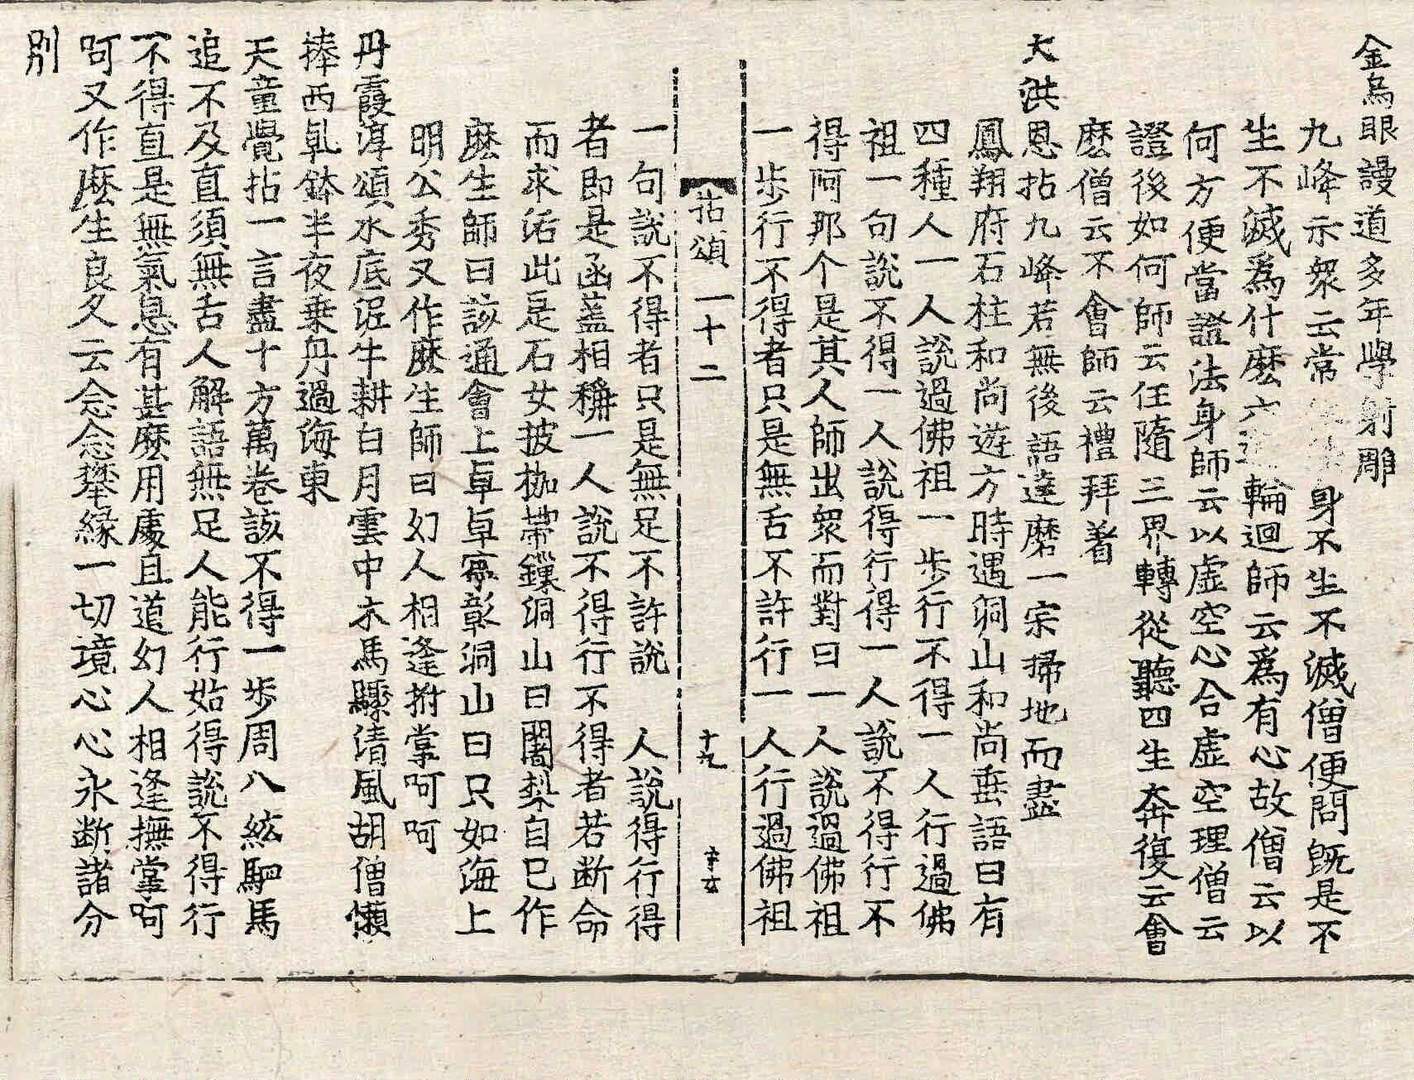 金烏眼謾道多年學射雕
九峰示衆云常身不生不滅僧便問旣是不
生不滅爲什麽六輪迴師云爲有心故僧云以
何方便當證法身師云以虛空心合虛空理僧云
證後如何師云任隨三界轉從聽四生奔復云會
麽僧云不會師云禮拜著
大洪恩拈九峰若無後語達磨一宗掃地而盡
鳳翔府石柱和尚遊方時遇洞山和尚垂語曰有
四種人一人說過佛祖一步行不得一人行過佛
祖一句說不得一人說得行得一人說不得行不
得阿那个是其人師出衆而對曰一人說過佛祖
一步行不得者只是無舌不許行一人行過佛祖
拈頌 一十二 十九
一句說不得者只是無足不許說 人說得行得
者即是函蓋相稱一人說不得行不得者若斷命
而求活此是石女披枷帶鏁洞山曰闍梨自己作
麽生師曰該通會上卓卓寧彰洞山曰只如海上
明公秀又作麽生師曰幻人相逢拊掌呵呵
丹霞淳頌水底泥牛耕白月雲中木馬驟淸風胡僧懶
捧西乹鉢半夜乘舟過海東
天童覺拈一言盡十方萬卷該不得一步周八紘駟馬
追不及直須無舌人解語無足人能行始得說不得行
不得直是無氣息有甚麽用處且道幻人相逢撫掌呵
呵又作麽生良久云念念攀緣一切境心心永斷諸分
別